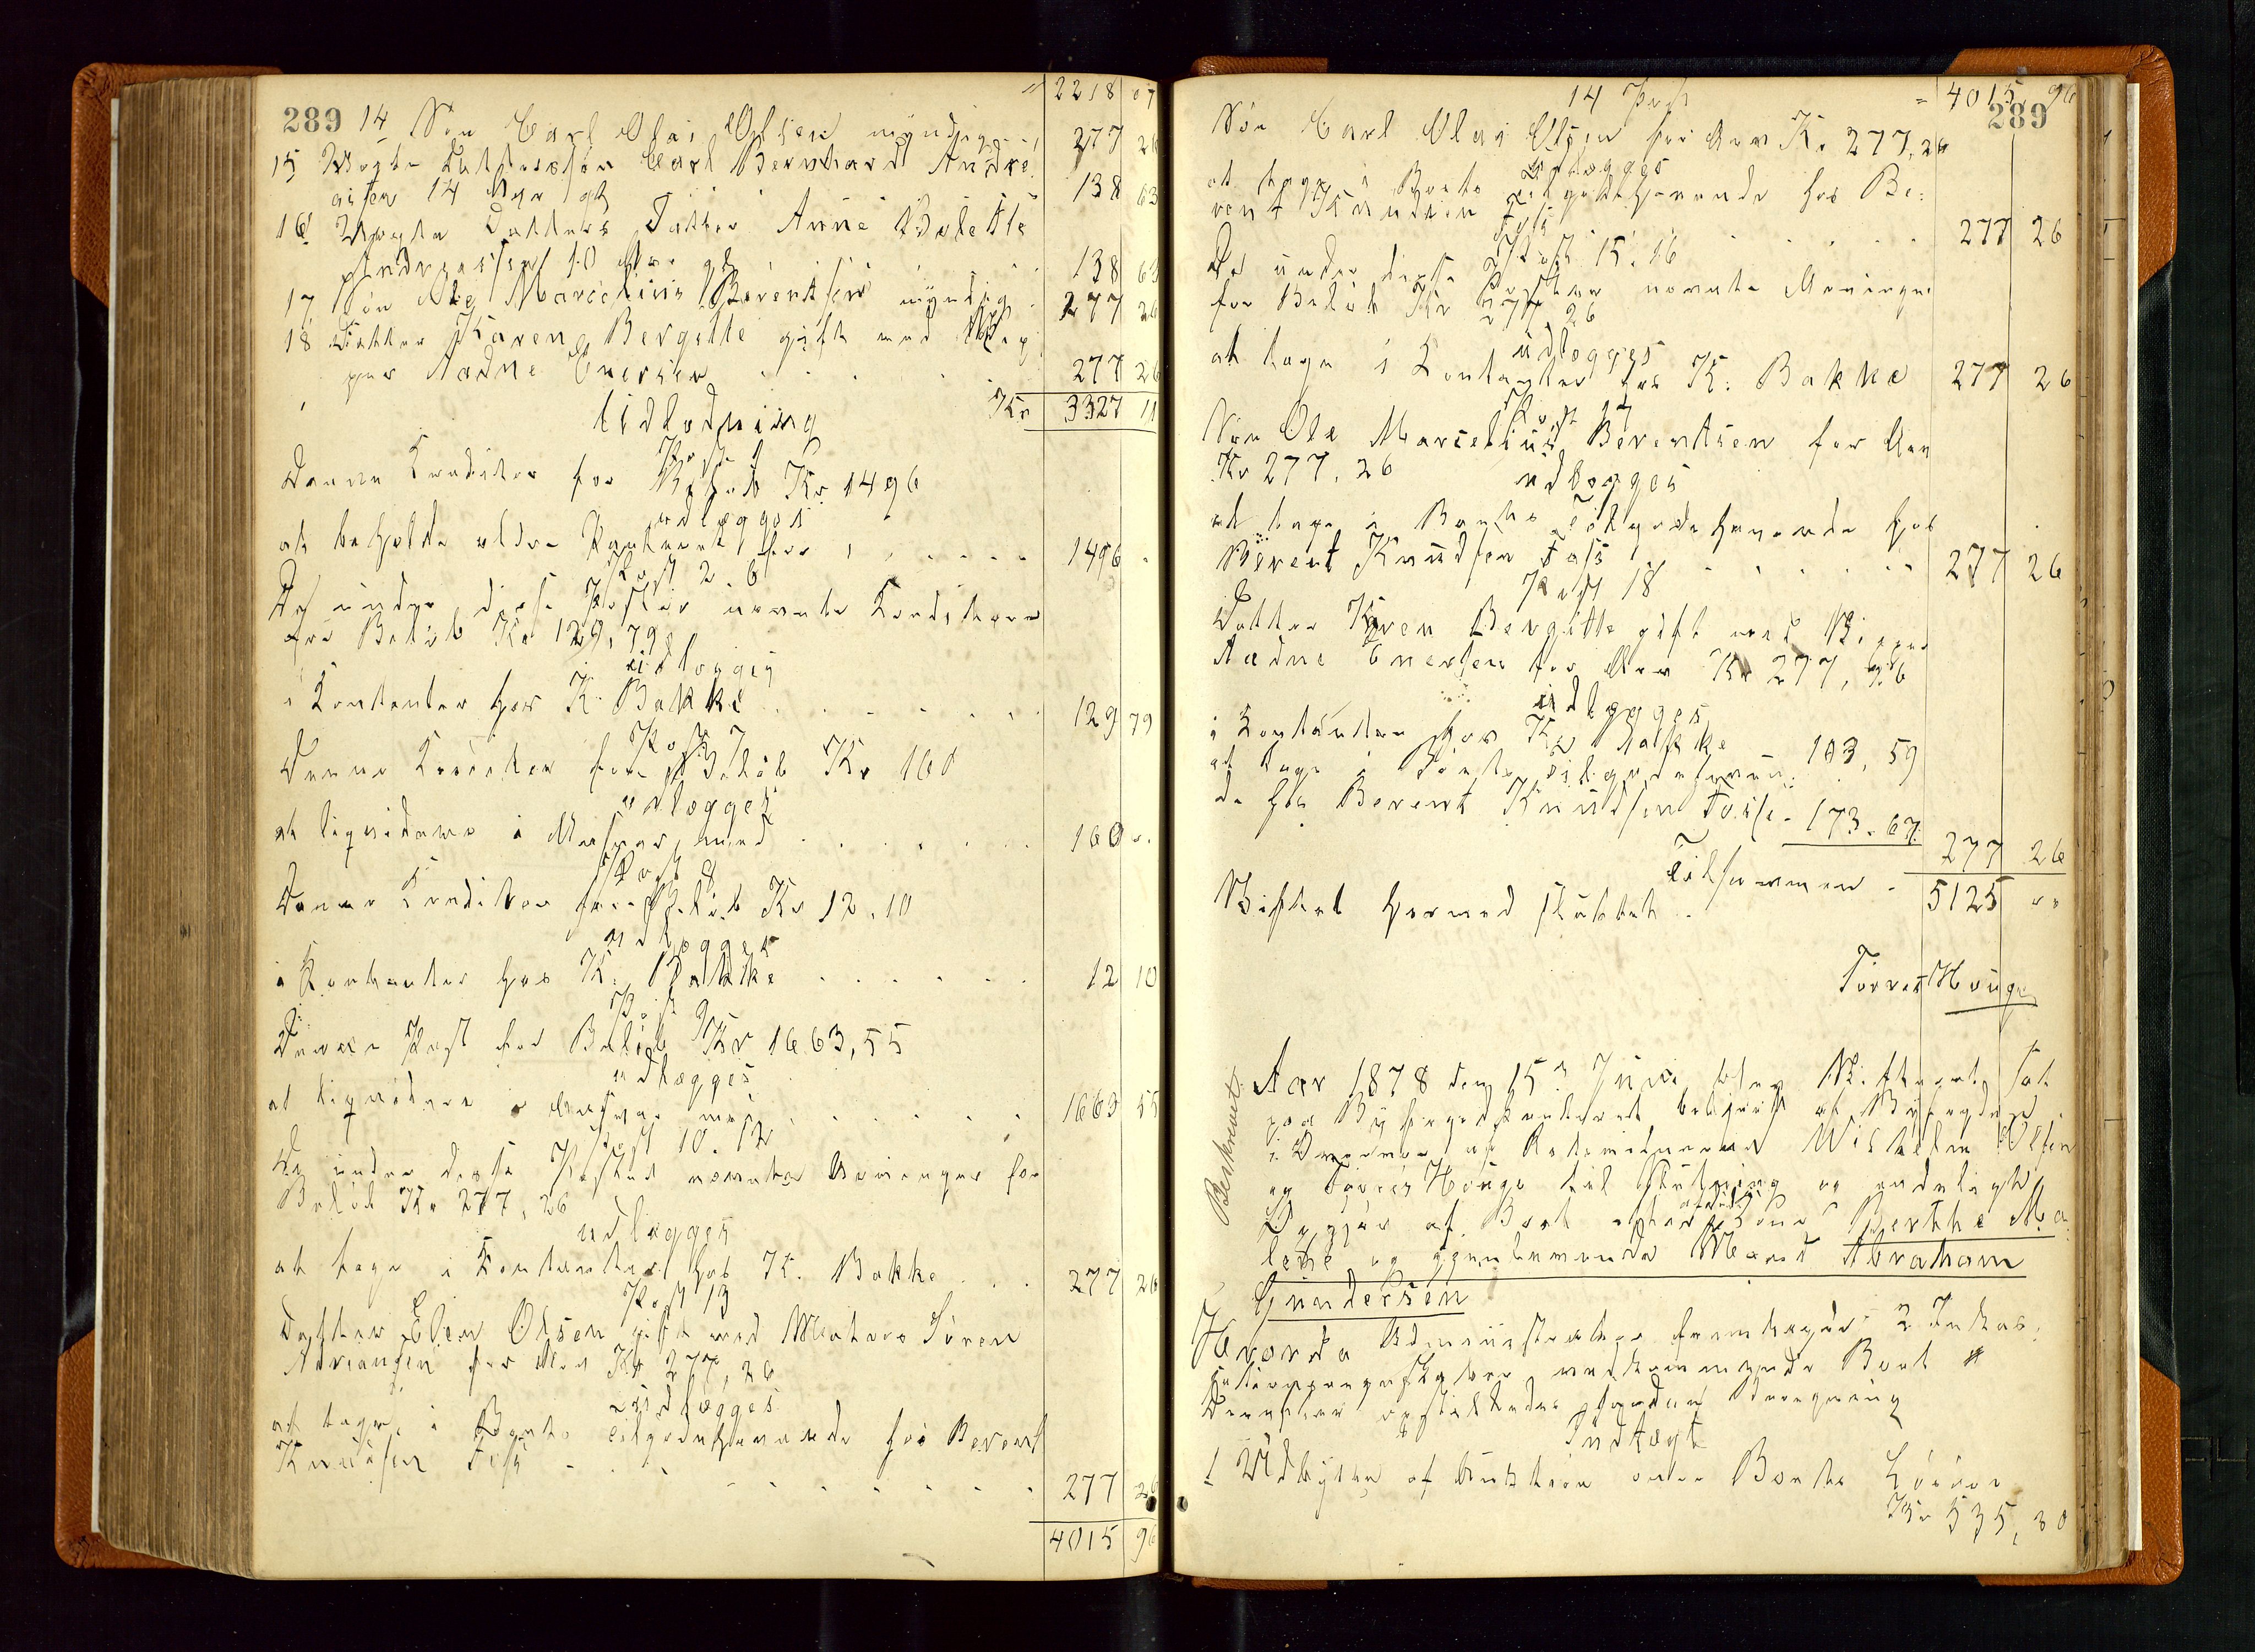 289
= 2218 07
14 Søn Carl Olai Olsen myndig 277 26
15 Carl Bernhard Andre-
asen 14 Aar gl 138 63
16 Datters Datter Anne Bolette
Andreassen 10 Aar gl 138 63
17. Søn Ole Marcelius Berentsen myndig 277 26
18 Datter Karen Bergitte gift med Skip-
per Aadne Enersen 277 26
Kr 3327 11
Udlodning
Post 1
Denne Kreditor for Beløb Kr 1496
udlægges
at beholde ældre Panteret for 1496 -
Post 2. 6
De under disse Poster nevnte Kreditorer
for Beløb Kr 129,79
udlægges
i Kontanter hos K. Bakke 129 79
Post 7
Denne Kreditor for Beløb Kr 160
udlægges
at liqvidere i Masser med 160 "
Post 8
Denne Kreditor for Beløb Kr 12.10
udlægges
i Kontanter hos K. Bakke 12 10
Post 9
Denne Post for Beløb Kr 1663,55
udlægges
at liqvidere i Masser med 1663 55
Post 10. 12
De under disse Poster nevnte Arvinger for
Beløb Kr 277,26
udlægges
at tage i Kontanter hos K. Bakke 277 26
Post 13
Datter Elen Olsen gift med Matros Sören
Adriansen for Arv Kr 277,26
udlægges
at tage i Boets tilgodehavende hos Berent
Knudsen Foss 277 26
4015 96
289
14 Post = 4015 96
Søn Carl Olai Olsen for Arv Kr 277,26
udlægges
at tage i Boets tilgodehavende hos Be-
rent Knudsen Foss 277 26
Post 15. 16
De under disse Poster nevnte Arvinger
for Beløb Kr 277,26
udlægges
at tage i Kontanter hos K. Bakke 277 26
Post 17
Søn Ole Marcelius Berentsen for Arv
Kr 277,26
udlægges
at tage i Boets tilgodehavende hos
Berent Knudsen Foss 277 26
Post 18
Datter Karen Bergitte gift med Skipper
Aadne Enersen for Arv Kr 277,26
udlægges
i Kontanter hos K. Bakke 103,59
at tage i Boets tilgodehaven-
de hos Berent Knudsen Foss - 173.67
277 26
Tilsammen - 5125 "
Skiftet hermed sluttet.
Torres Houge
Beskrevet
Aar 1878 den 15de Juni blev Skifteret sat
paa Byfogedkontoret betjent af Byfogden
i Nærvær af Retsvidnerne Wilhelm Olsen
og Torres Houge til Slutning og endeligt
Opgjør af Boet efter afdøde Kone Berthe Ma-
lene og gjenlevende Mand Abraham
Gundersen
Herorda Administrator fremlagde 2 Inkas-
vedkommende Boet #
Derefter opstilledes saadan Beregning
Indtægt
1 Udbytte af Auktion over Boets Løsøre
Kr 535,80